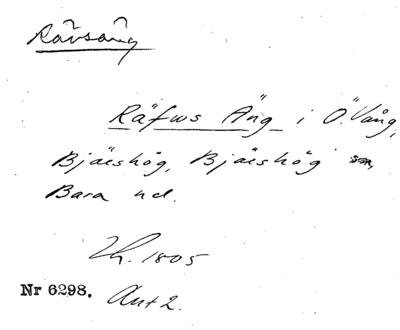 Rävsäng
Räfws Äng i Ö. Vång,
Bjäeshög, Bjäeshög sn,
Bara hd.
Lh. 1805
Nr 6298. Ant 2.